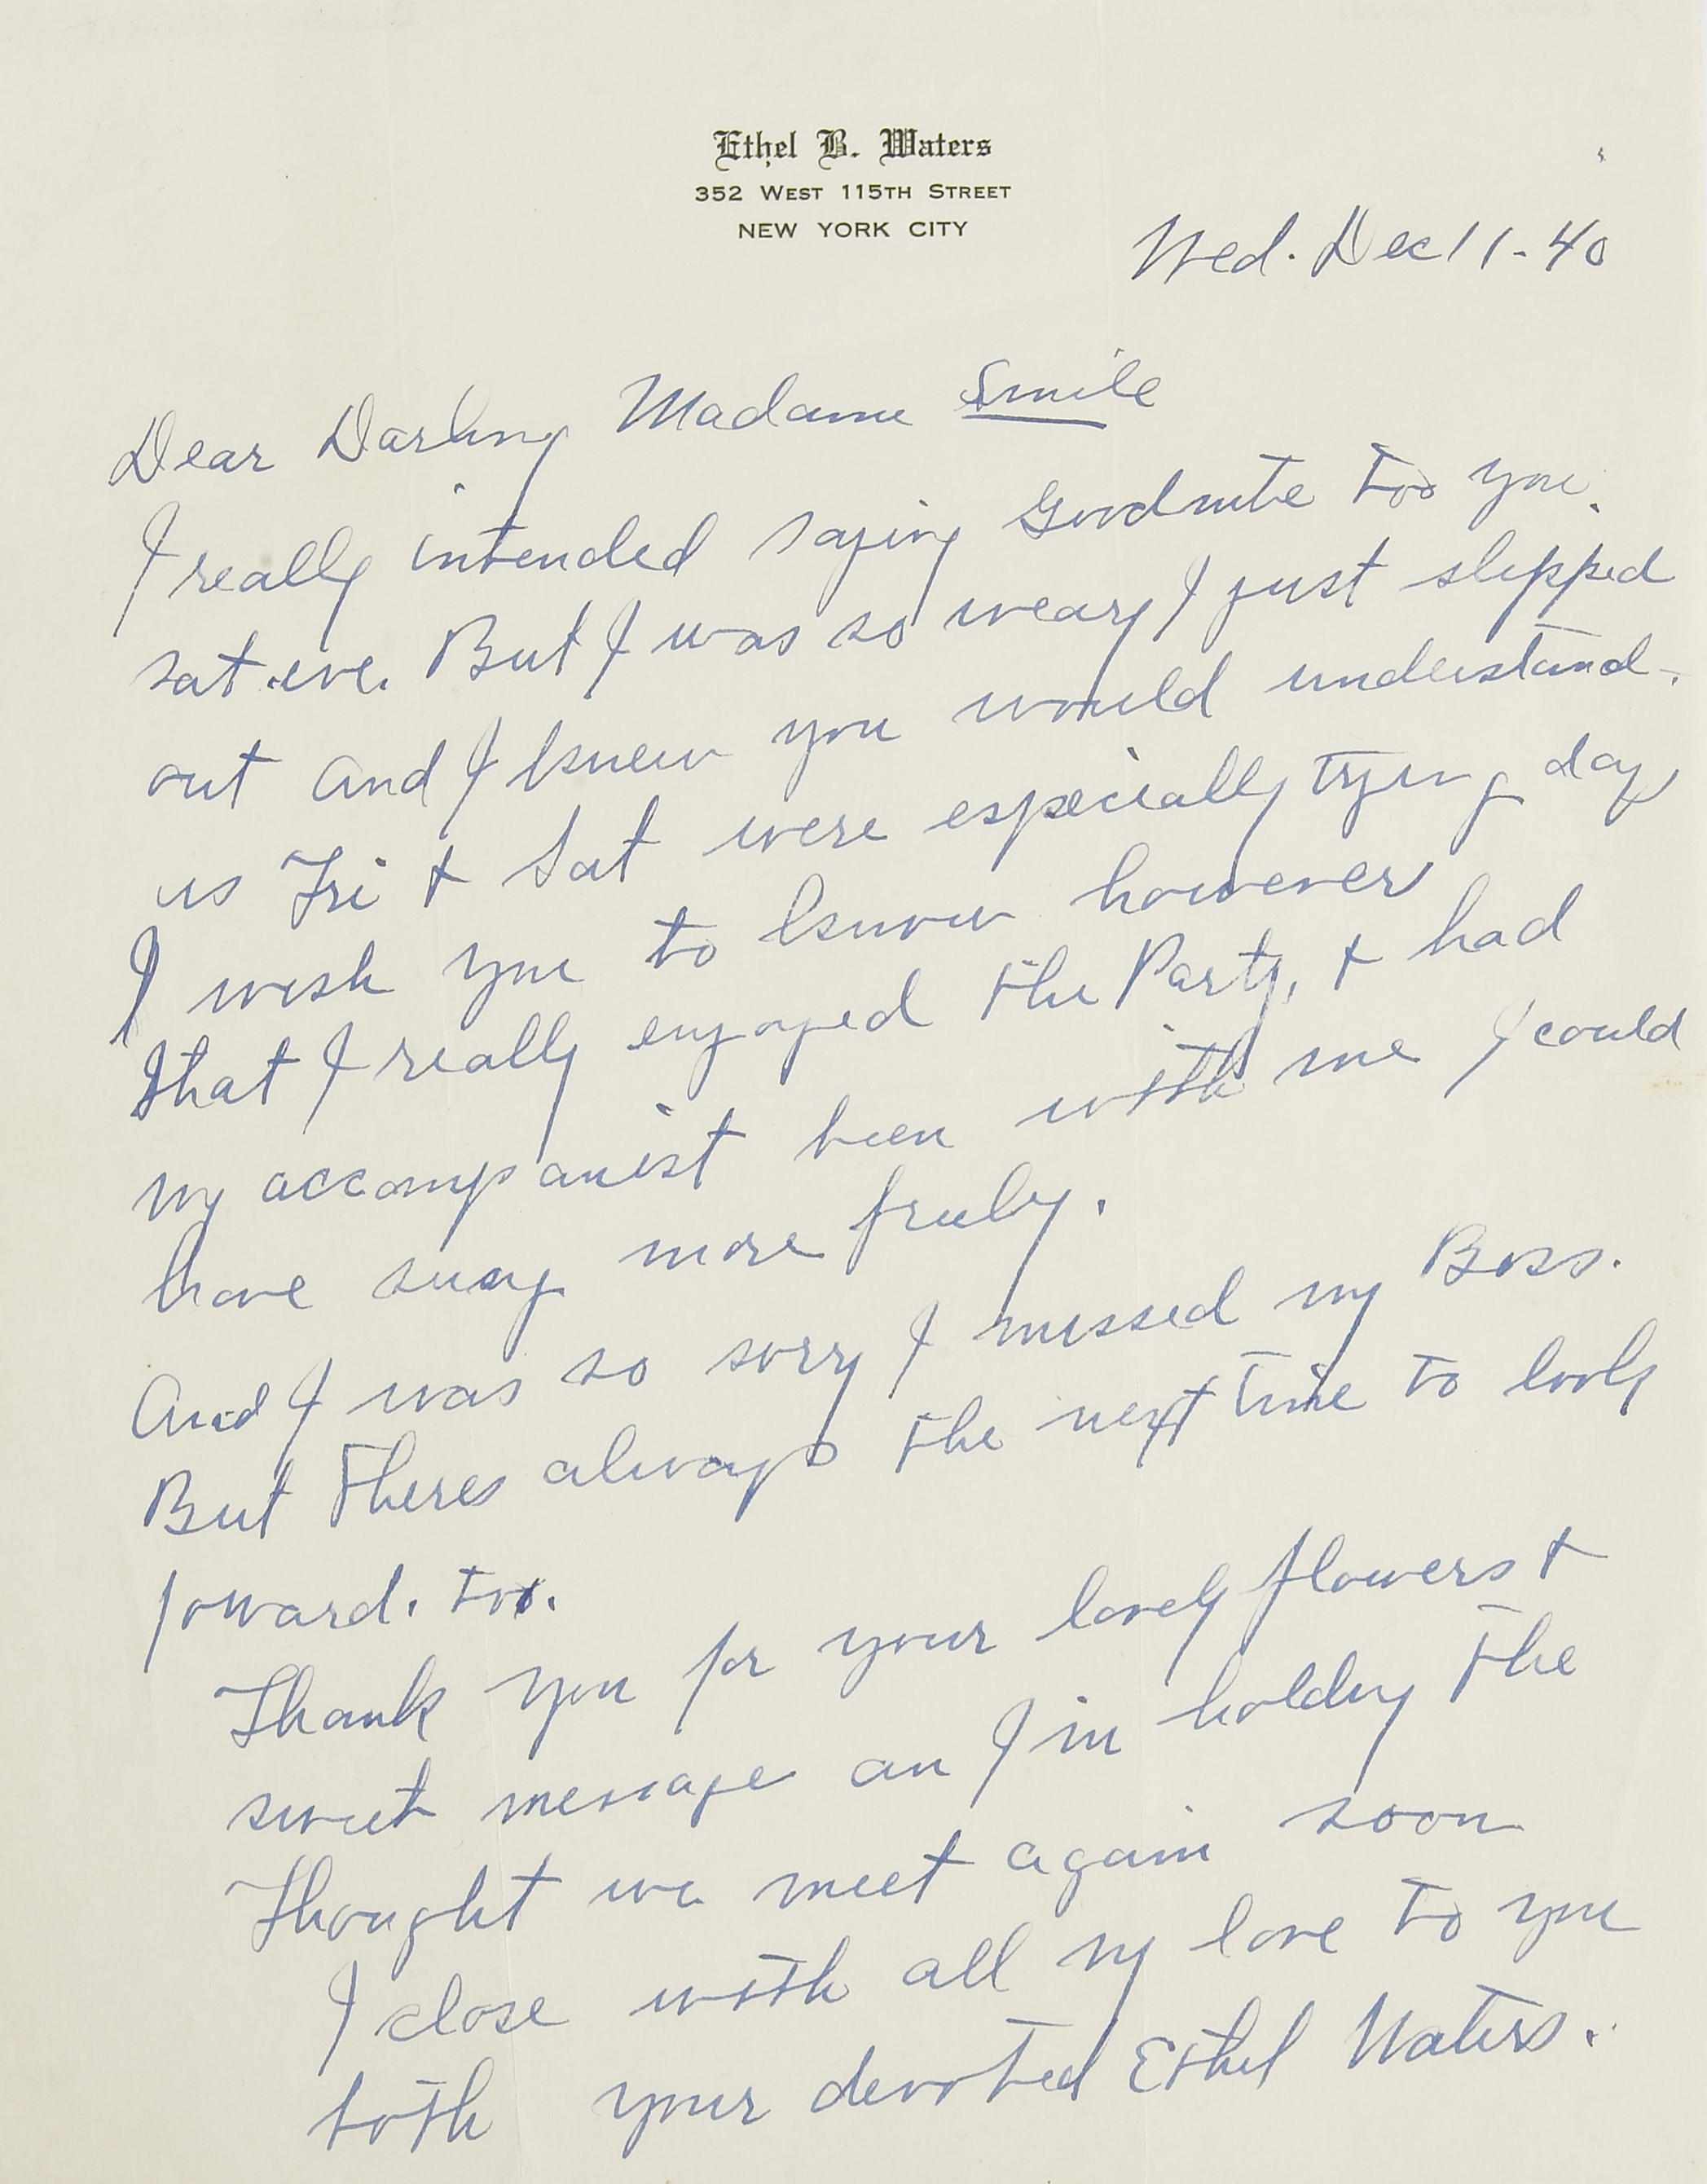 Ethel B. Waters
352 West 115th Street
NEW YORK CITY
Wed. Dec 11-40
Dear Darling Madame Smile
I really intended saying Goodnite too you.
sat.eve. But I was so weary I just slipped
out and I knew you would understand.
us Fri + Sat were especially trying day
I wish you to know however
that I really enjoyed the Party, + had
my accompanist been with me I could
have sung more freely.
And I was so sorry I missed my Boss.
But theres always the next time to look
foward. too.
Thank you for your lovely flowers +
sweet message an I'm holding the
Thought we meet again soon
I close with all my love to you
both your devoted Ethel Waters.